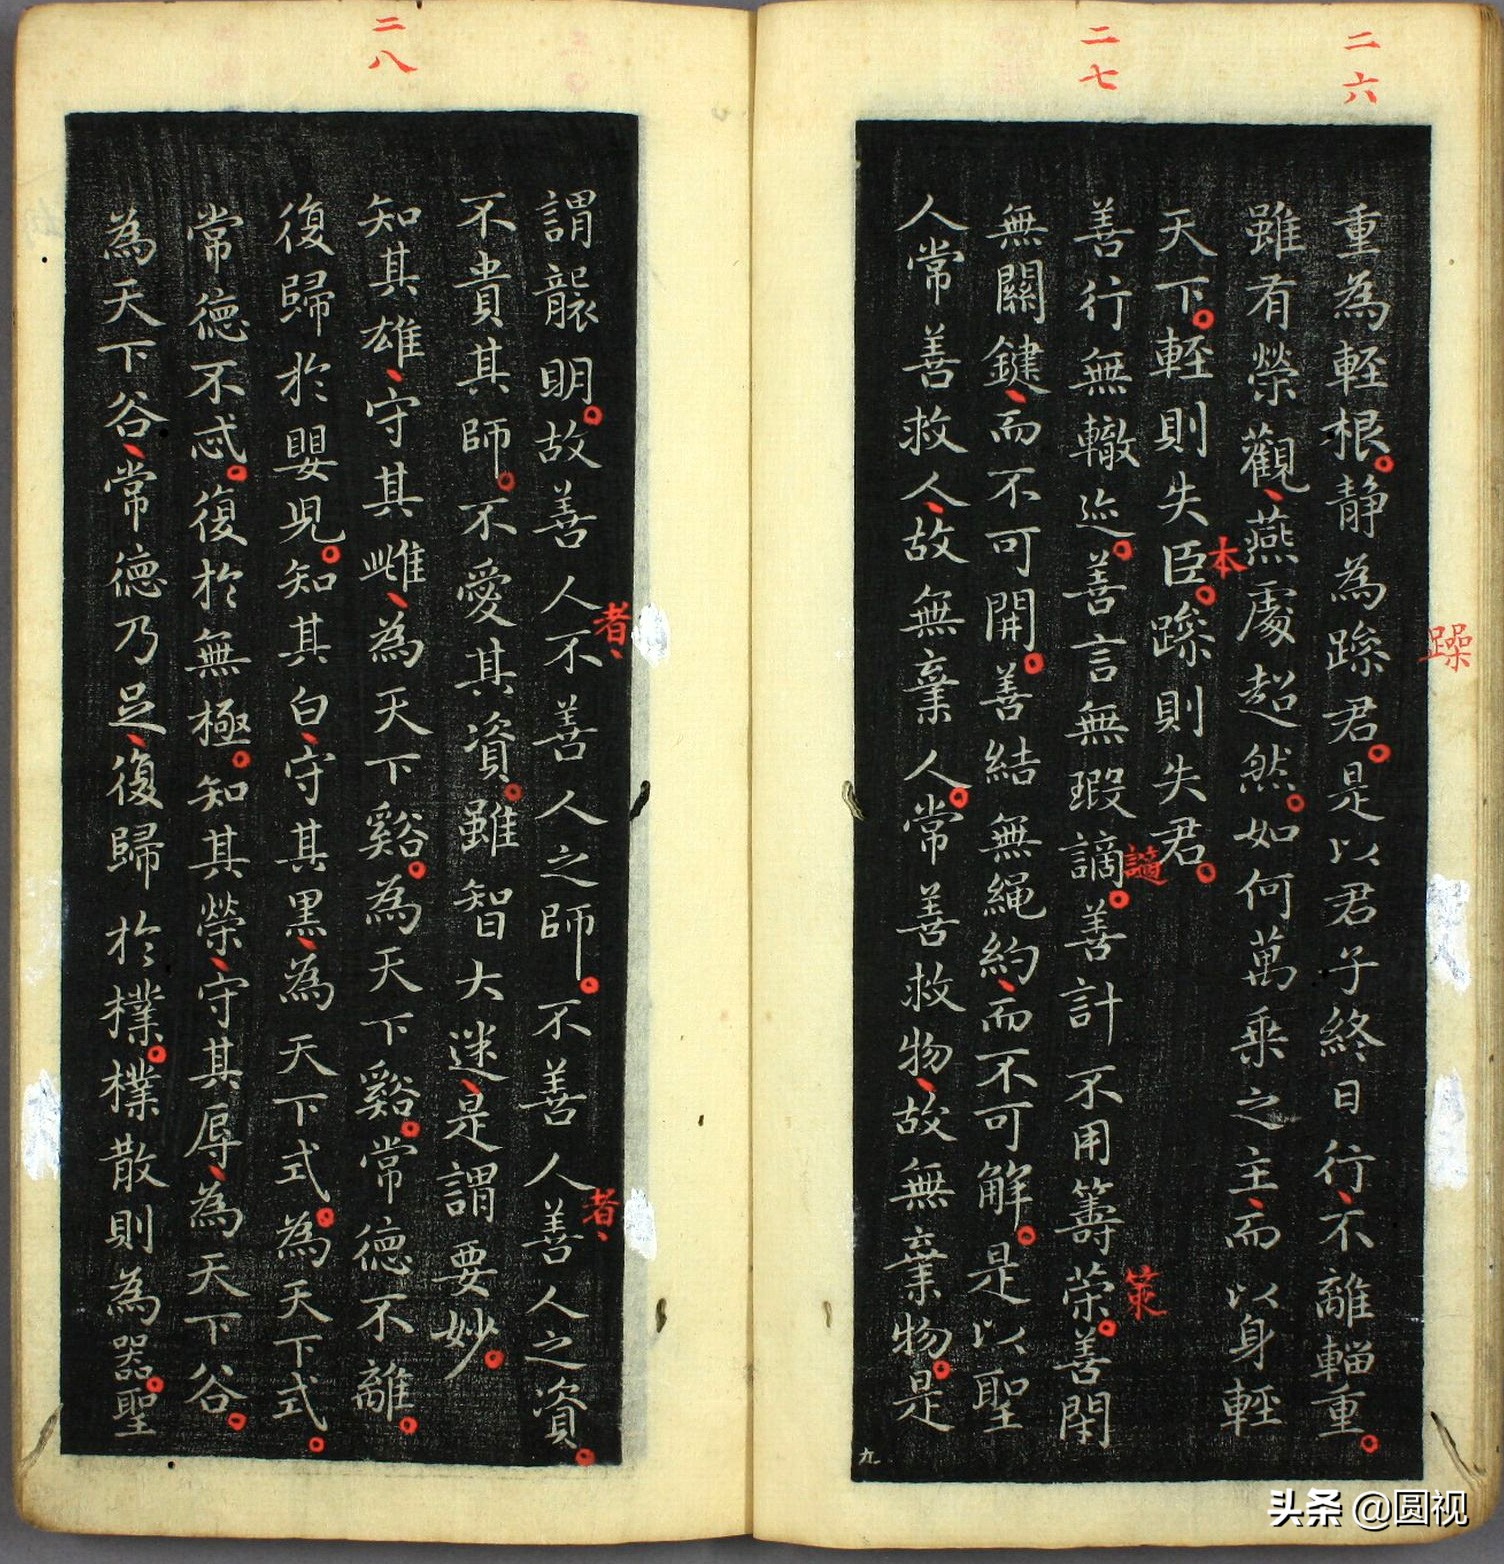 二六
二七
躁
重為輕根。静為躁君。是以君子終日行、不離輜重。
雖有榮觀、燕處超然。如何萬乘之主、而以身輕
本
天下。輕則失臣。躁則失君。
謫
策
善行無轍迹。善言無瑕謫。善計不用籌策。善閉
無關鍵、而不可開。善結無繩約、而不可解。是以聖
人常善救人、故無棄人。常善救物、故無棄物。是
九
二八
者、
者、
謂襲明。故善人不善人之師。不善人善人之資。
不貴其師。不愛其資。雖智大迷、是謂要妙。
知其雄、守其雌、為天下谿。為天下谿。常德不離。
復歸於嬰兒。知其白、守其黑、為天下式。為天下式。
常德不忒。復於無極。知其榮、守其辱、為天下谷。
為天下谷、常德乃足、復歸於樸。樸散則為器。聖
头条 @圆视